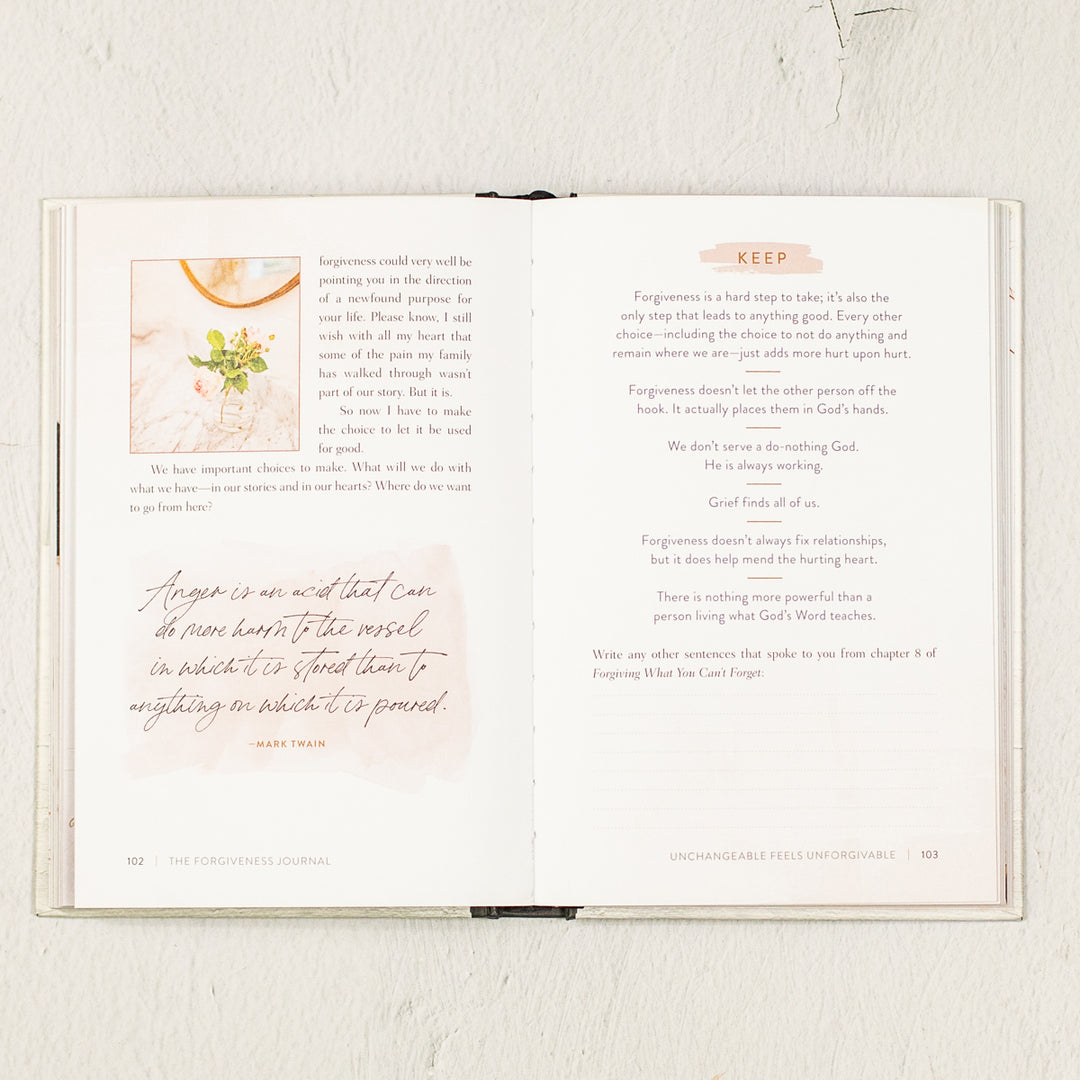 forgiveness could very well be
pointing you in the direction
of a newfound purpose for
your life. Please know, I still
wish with all my heart that
some of the pain my family
has walked through wasn't
part of our story. But it is.
So now I have to make
the choice to let it be used
for good.
We have important choices to make. What will we do with
what we have—in our stories and in our hearts? Where do we want
to go from here?
Anger is an acid that can
do more harm to the vessel
in which it is stored than to
anything on which it is poured.
—MARK TWAIN
102 | THE FORGIVENESS JOURNAL
KEEP
Forgiveness is a hard step to take; it's also the
only step that leads to anything good. Every other
choice—including the choice to not do anything and
remain where we are—just adds more hurt upon hurt.
Forgiveness doesn't let the other person off the
hook. It actually places them in God's hands.
We don't serve a do-nothing God.
He is always working.
Grief finds all of us.
Forgiveness doesn't always fix relationships,
but it does help mend the hurting heart.
There is nothing more powerful than a
person living what God's Word teaches.
Write any other sentences that spoke to you from chapter 8 of
Forgiving What You Can't Forget:
UNCHANGEABLE FEELS UNFORGIVABLE | 103